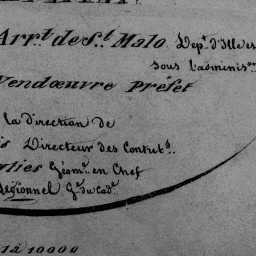 Arr.t de S.t Malo Dep.t d'Ille et
sous l'adminis.on
Vendœuvre Préfet
la direction de
is Directeur des Contrib.s
Géom.e en Chef
Régionnel G.e du Cad.e
1 à 10000